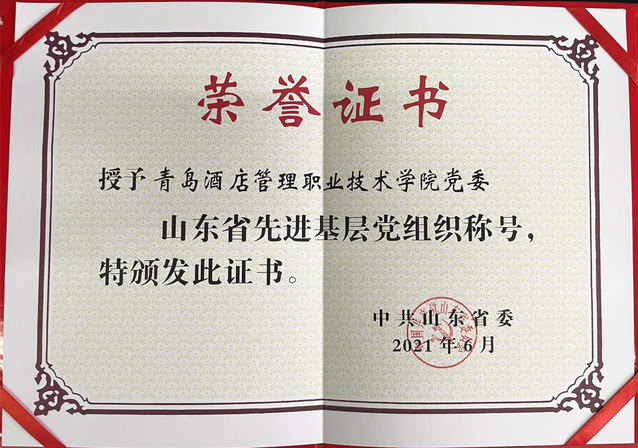 荣誉证书
授予青岛酒店管理职业技术学院党委
山东省先进基层党组织称号，
特颁发此证书。
中共山东省委
2021年6月